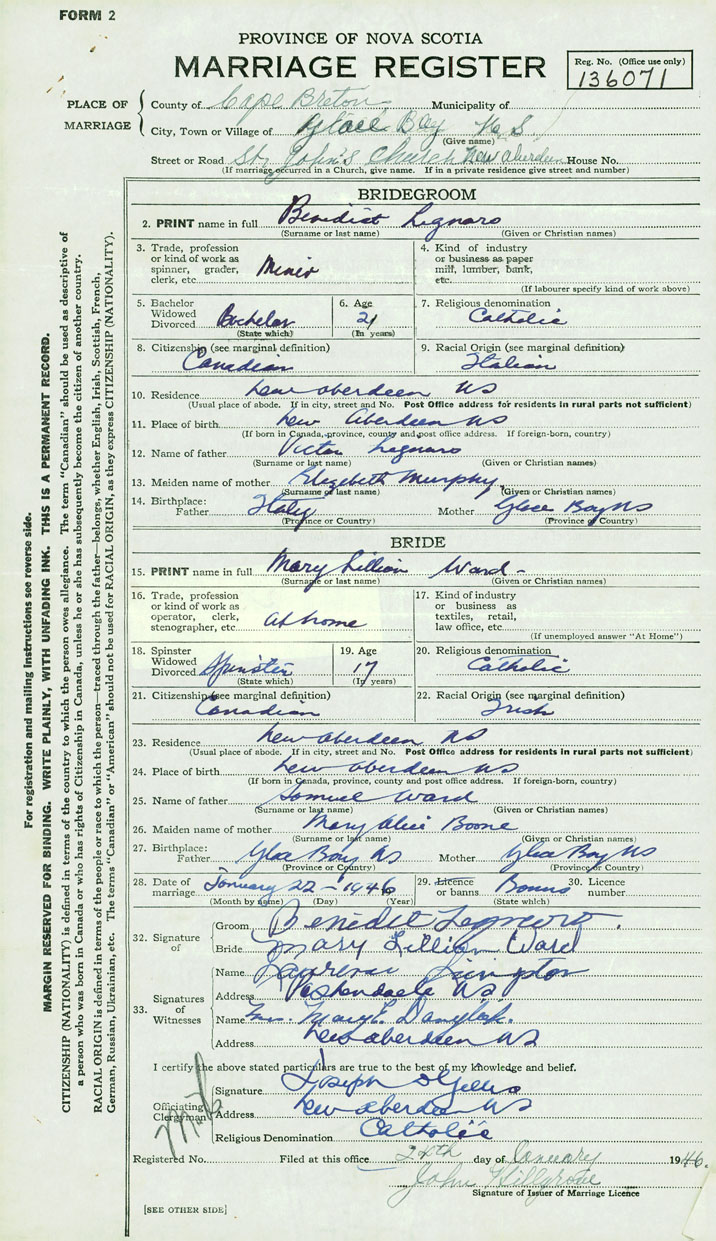 FORM 2
PROVINCE OF NOVA SCOTIA
MARRIAGE REGISTER
Reg. No. (Office use only)
136071
PLACE OF MARRIAGE
County of Cape Breton Municipality of
City, Town or Village of Glace Bay N.S.
(Give name)
Street or Road St. John's Church New Aberdeen House No.
(If marriage occurred in a Church, give name. If in a private residence give street and number)
BRIDEGROOM
2. PRINT name in full Benedict Legnaro
(Surname or last name) (Given or Christian names)
3. Trade, profession or kind of work as spinner, grader, clerk, etc. Miner
4. Kind of industry or business as paper mill, lumber, bank, etc.
(If labourer specify kind of work above)
5. Bachelor Widowed Divorced Bachelor
(State which)
6. Age 21
(In years)
7. Religious denomination
Catholic
8. Citizenship (see marginal definition)
Canadian
9. Racial Origin (see marginal definition)
Italian
10. Residence New Aberdeen NS
(Usual place of abode. If in city, street and No. Post Office address for residents in rural parts not sufficient)
11. Place of birth New Aberdeen NS
(If born in Canada, province, county and post office address. If foreign-born, country)
12. Name of father Victor Legnaro
(Surname or last name) (Given or Christian names)
13. Maiden name of mother Elizebeth Murphy
(Surname or last name) (Given or Christian names)
14. Birthplace: Father Italy Mother Glace Bay NS
(Province or Country) (Province or Country)
BRIDE
15. PRINT name in full Mary Lillian Ward -
(Surname or last name) (Given or Christian names)
16. Trade, profession or kind of work as operator, clerk, stenographer, etc. at home
17. Kind of industry or business as textiles, retail, law office, etc.
(If unemployed answer "At Home")
18. Spinster Widowed Divorced Spinster
(State which)
19. Age 17
(In years)
20. Religious denomination
Catholic
21. Citizenship (see marginal definition)
Canadian
22. Racial Origin (see marginal definition)
Irish
23. Residence New Aberdeen NS
(Usual place of abode. If in city, street and No. Post Office address for residents in rural parts not sufficient)
24. Place of birth New Aberdeen NS
(If born in Canada, province, county and post office address. If foreign-born, country)
25. Name of father Samuel Ward
(Surname or last name) (Given or Christian names)
26. Maiden name of mother Mary Alice Boone
(Surname or last name) (Given or Christian names)
27. Birthplace: Father Glace Bay NS Mother Glace Bay NS
(Province or Country) (Province or Country)
28. Date of marriage January 22 - 1946
(Month by name) (Day) (Year)
29. Licence or banns Banns
(State which)
30. Licence number
32. Signature of
Groom Benedict Legnaro.
Bride Mary Lillian Ward
33. Signatures of Witnesses
Name Lawrence Livingston
Address NS
Name Mrs. Mary E.
Address New Aberdeen NS
I certify the above stated particulars are true to the best of my knowledge and belief.
Officiating Clergyman
Signature Joseph D Gillis
Address New Aberdeen NS
Religious Denomination Catholic
Registered No. Filed at this office 24th day of January 1946.
John
Signature of Issuer of Marriage Licence
[SEE OTHER SIDE]
For registration and mailing instructions see reverse side.
MARGIN RESERVED FOR BINDING. WRITE PLAINLY, WITH UNFADING INK. THIS IS A PERMANENT RECORD.
CITIZENSHIP (NATIONALITY) is defined in terms of the country to which the person owes allegiance. The term "Canadian" should be used as descriptive of
a person who was born in Canada or who has rights of Citizenship in Canada, unless he or she has subsequently become the citizen of another country.
RACIAL ORIGIN is defined in terms of the people or race to which the person—traced through the father—belongs, whether English, Irish, Scottish, French,
German, Russian, Ukrainian, etc. The terms "Canadian" or "American" should not be used for RACIAL ORIGIN, as they express CITIZENSHIP (NATIONALITY).